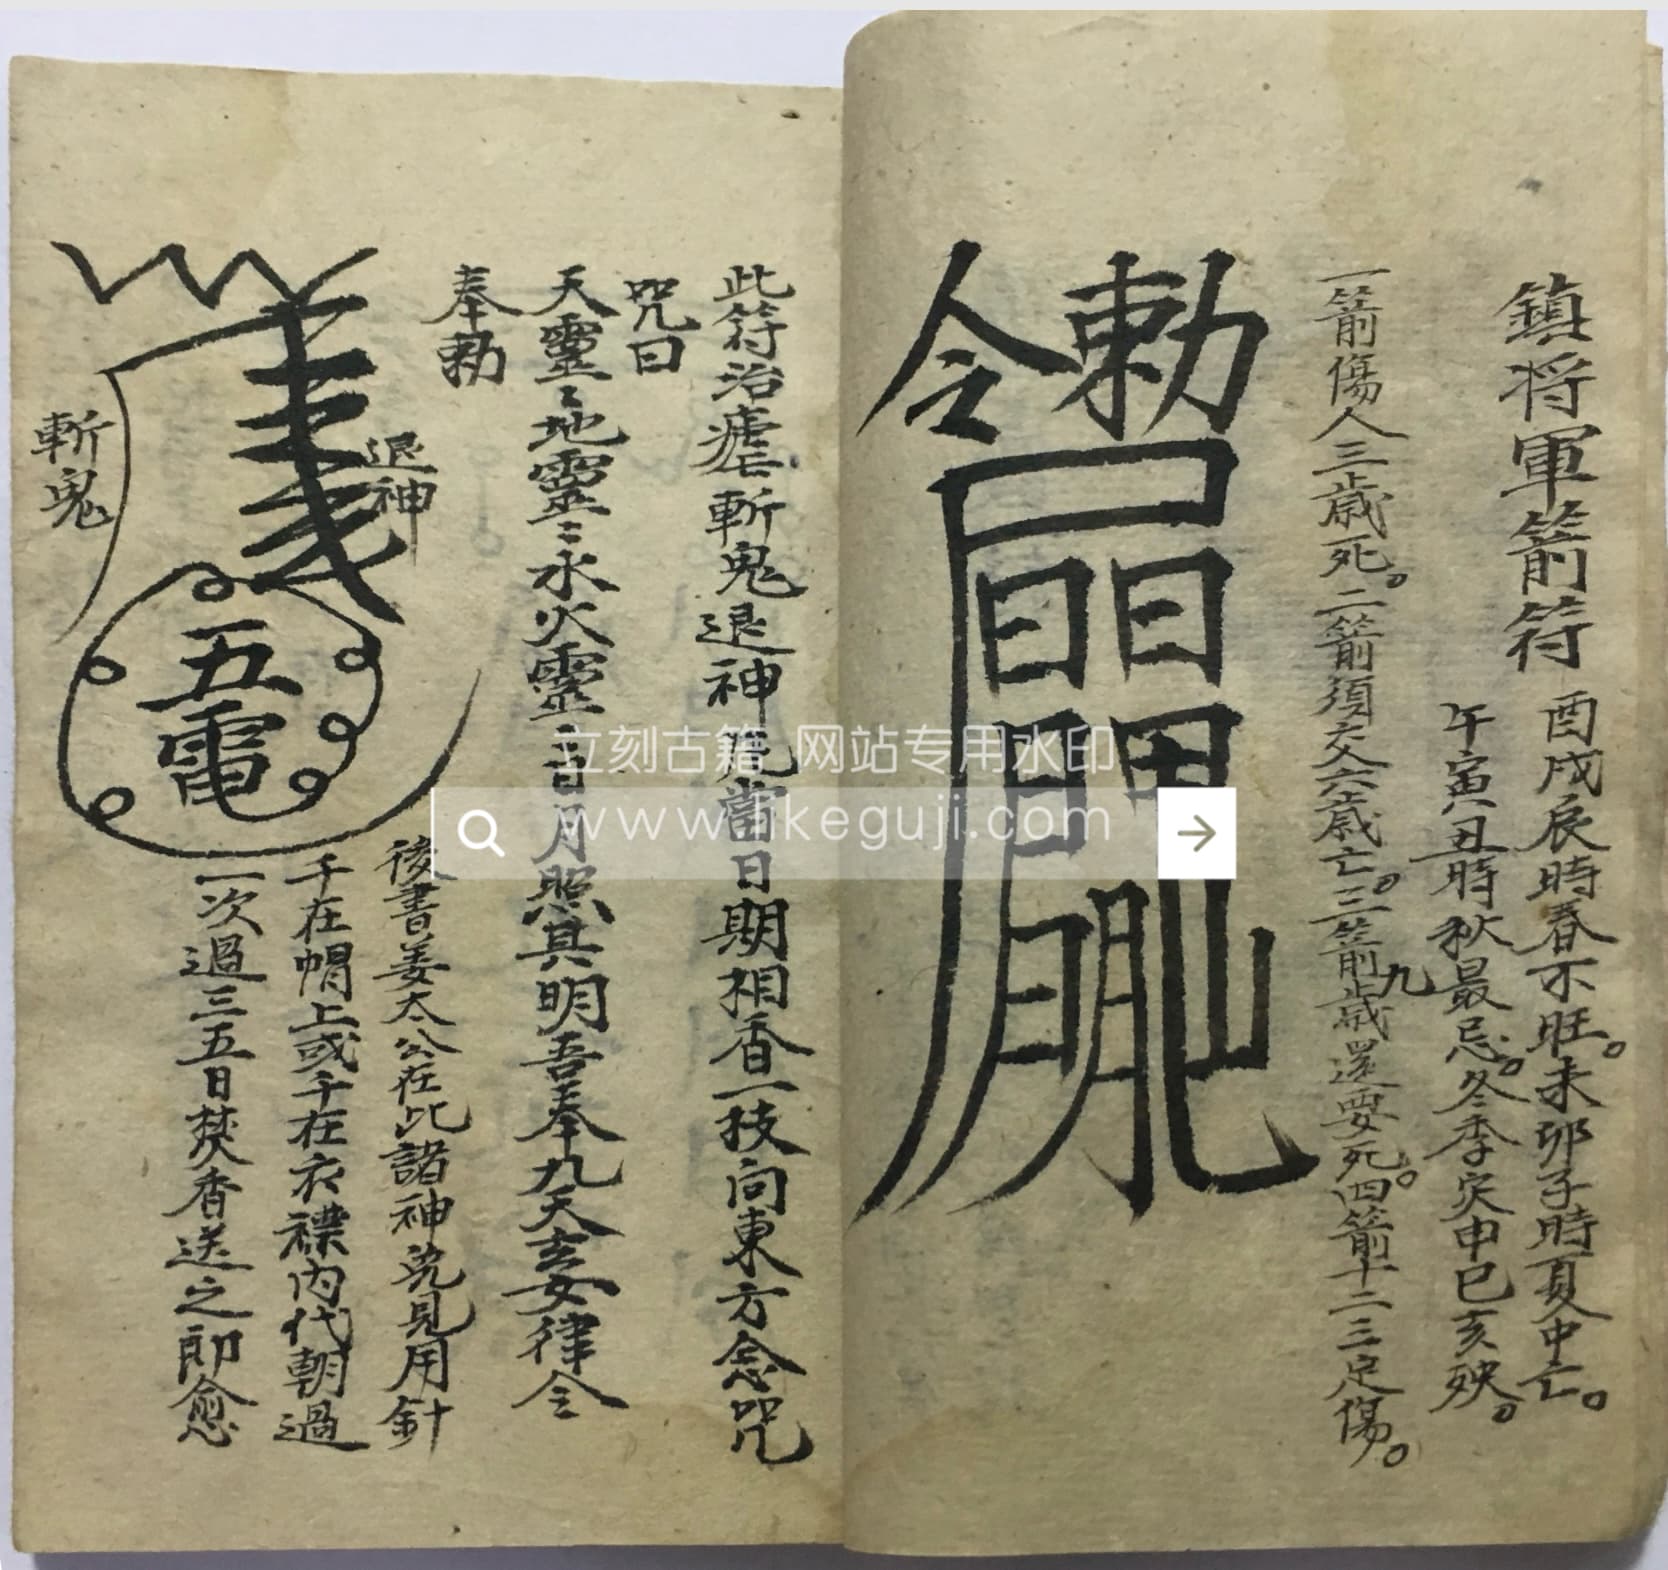 鎮将軍箭符
酉戌辰時春不旺。未卯子時夏中亡。
午寅丑時秋最忌。冬季灾申巳亥殃。
一箭傷人三歲死。二箭須交六歲亡。三箭九歲還要死。四箭十二三定傷。
勅令
此符治瘧斬鬼退神 當日期相香一技向東方念咒
咒曰
天靈〻地靈〻水火靈〻日月照其明吾奉九天玄女律令
奉勅
退神
斬鬼
五雷
後書姜太公在此諸神 見用針
千在帽上或千在衣襟内代朝過
一次過三五日焚香送之即愈
立刻古籍 网站专用水印
www.likeguji.com